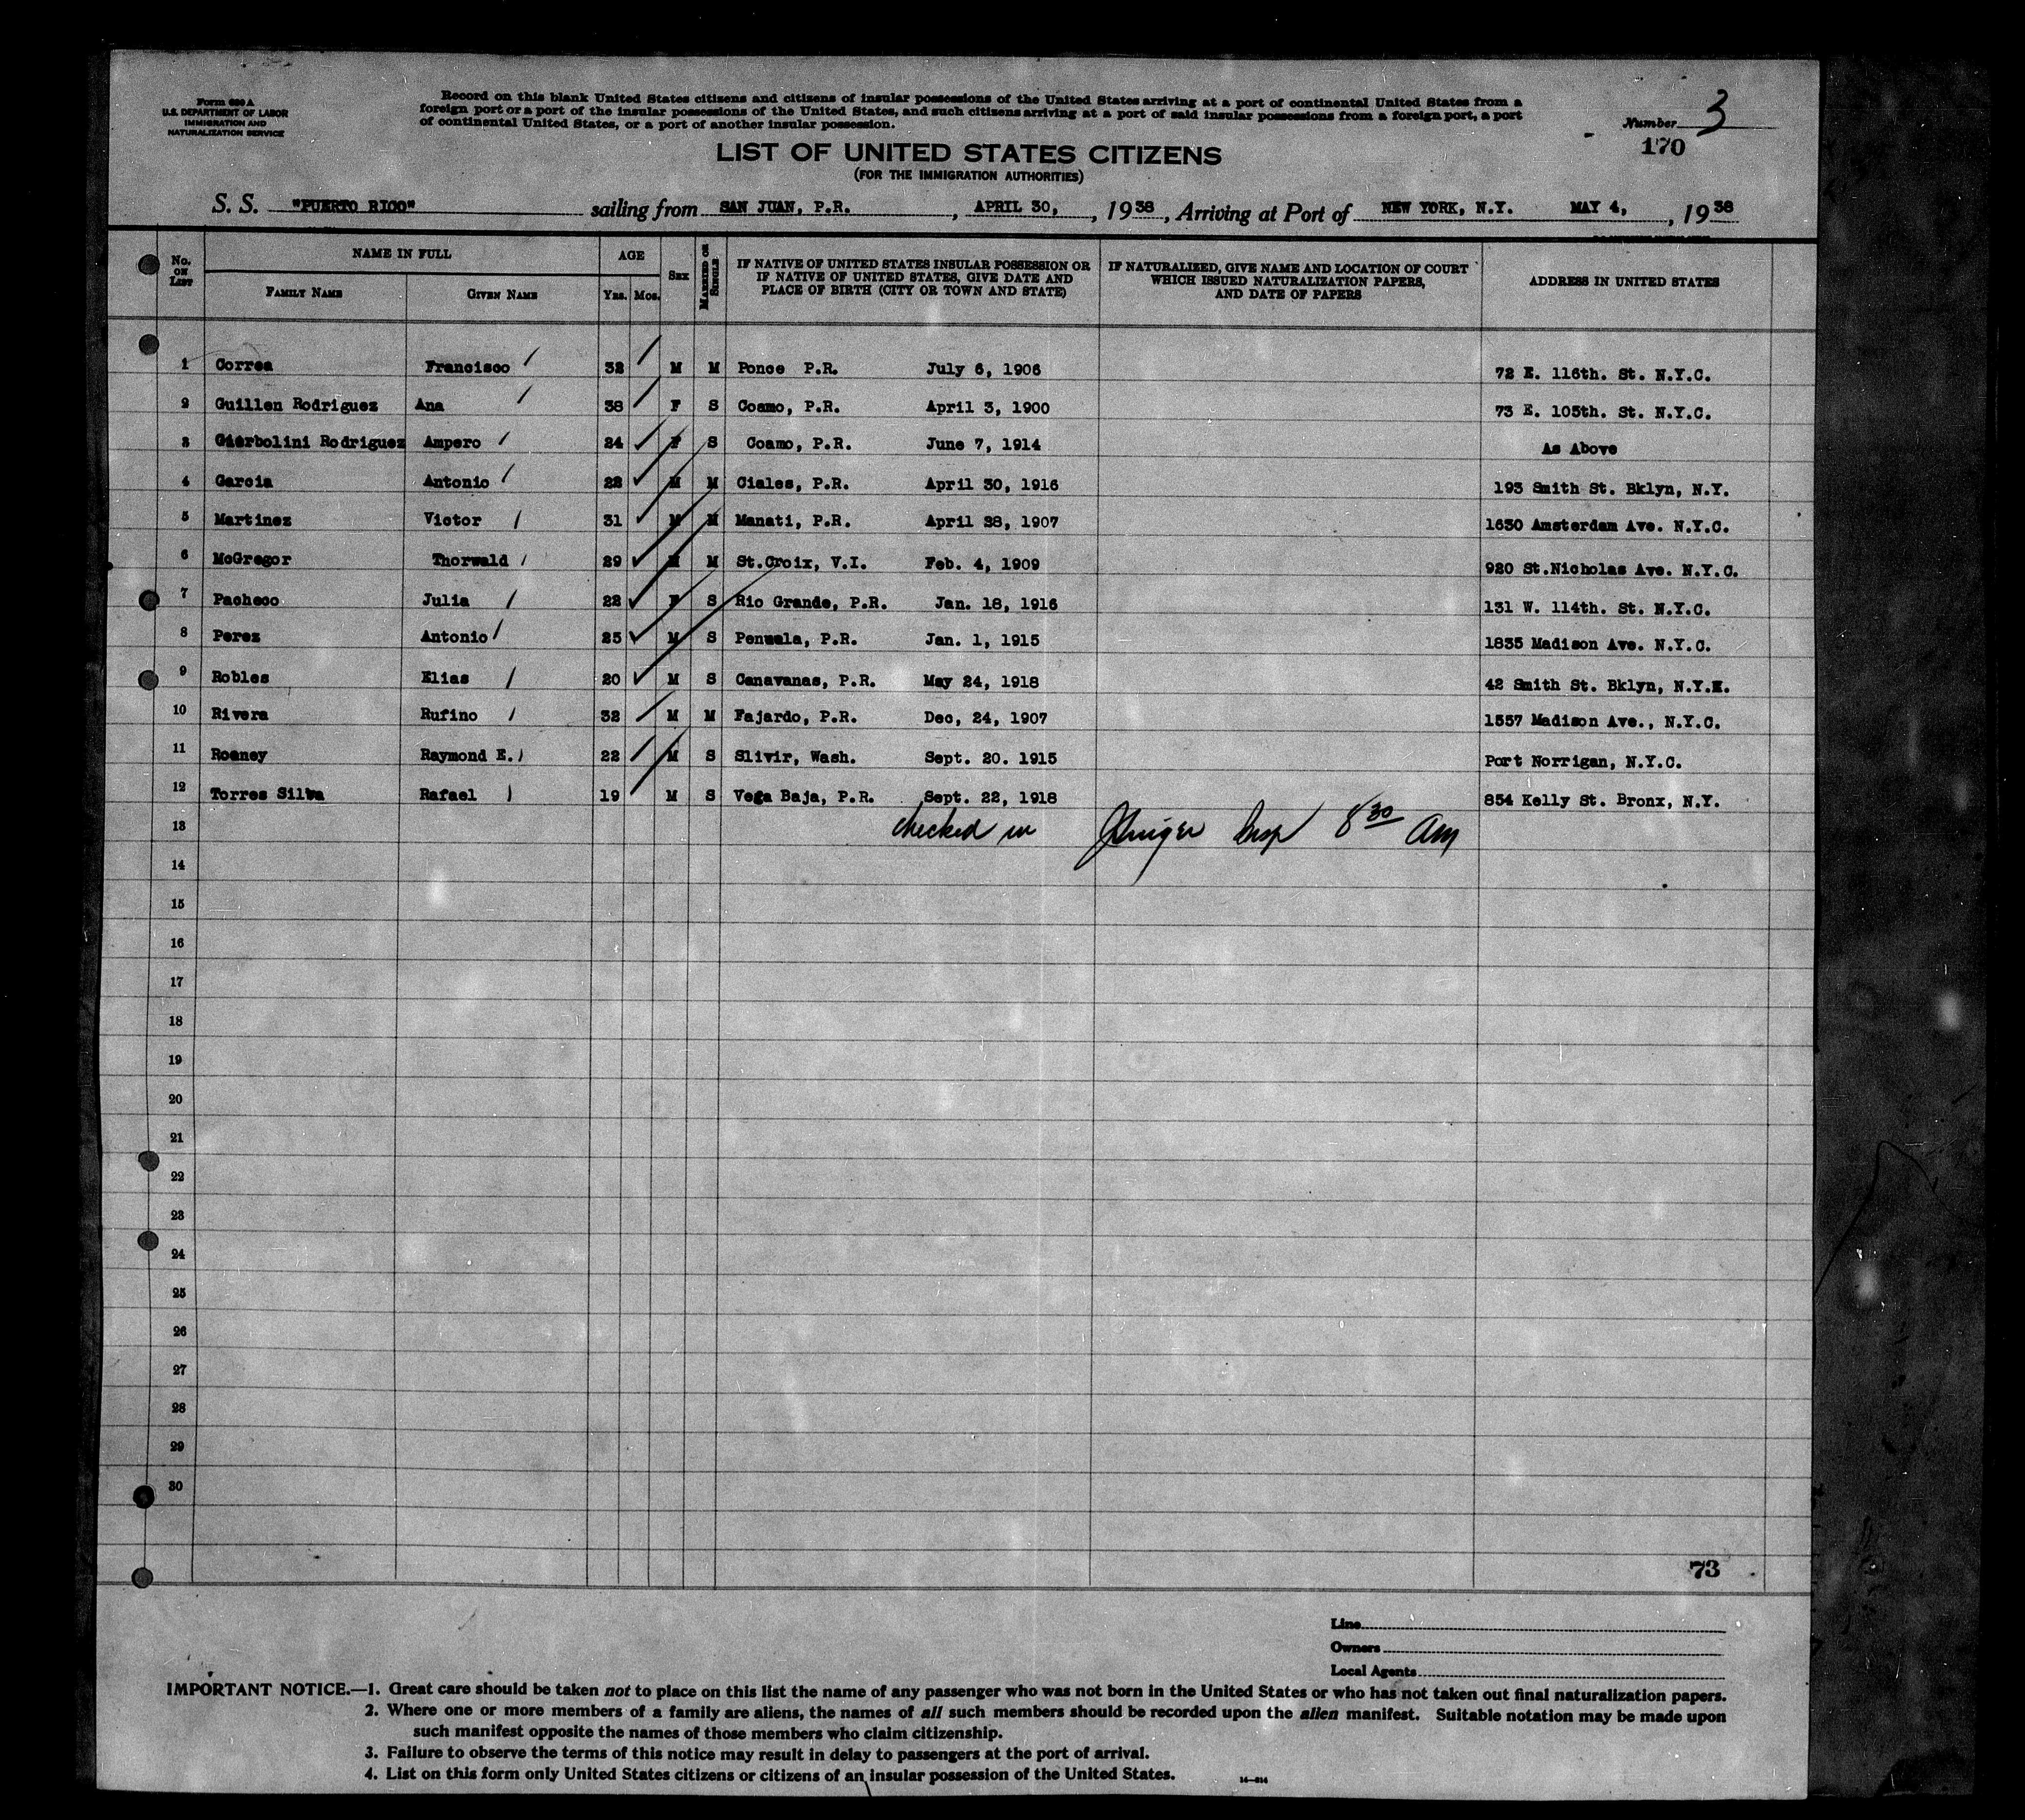 Form 630 A
U.S. DEPARTMENT OF LABOR
IMMIGRATION AND
NATURALIZATION SERVICE
Record on this blank United States citizens and citizens of insular possessions of the United States arriving at a port of continental United States from a
foreign port or a port of the insular possessions of the United States, and such citizens arriving at a port of said insular possessions from a foreign port, a port
of continental United States, or a port of another insular possession.
Number 3
170
LIST OF UNITED STATES CITIZENS
(FOR THE IMMIGRATION AUTHORITIES)
S. S. "PUERTO RICO" sailing from SAN JUAN, P.R., APRIL 30, , 1938, Arriving at Port of NEW YORK, N.Y. MAY 4, , 1938
No. ON LIST NAME IN FULL FAMILY NAME GIVEN NAME AGE Yrs. Mos. SEX MARRIED OR SINGLE
IF NATIVE OF UNITED STATES INSULAR POSSESSION OR IF NATIVE OF UNITED STATES, GIVE DATE AND PLACE OF BIRTH (CITY OR TOWN AND STATE)
IF NATURALIZED, GIVE NAME AND LOCATION OF COURT WHICH ISSUED NATURALIZATION PAPERS, AND DATE OF PAPERS
ADDRESS IN UNITED STATES
1 Correa Francisco 32 M M Ponce P.R. July 6, 1906 72 E. 116th. St. N.Y.C.
2 Guillen Rodriguez Ana 38 F S Coamo, P.R. April 3, 1900 73 E. 105th. St. N.Y.C.
3 Gierbolini Rodriguez Ampero 24 F S Coamo, P.R. June 7, 1914 As Above
4 Garcia Antonio 22 M M Ciales, P.R. April 30, 1916 193 Smith St. Bklyn, N.Y.
5 Martinez Victor 31 M M Manati, P.R. April 28, 1907 1630 Amsterdam Ave. N.Y.C.
6 McGregor Thorwald 29 M M St.Croix, V.I. Feb. 4, 1909 920 St.Nicholas Ave. N.Y.C.
7 Pacheco Julia 22 F S Rio Grande, P.R. Jan. 18, 1916 131 W. 114th. St. N.Y.C.
8 Perez Antonio 25 M S Penuela, P.R. Jan. 1, 1915 1835 Madison Ave. N.Y.C.
9 Robles Elias 20 M S Canavanas, P.R. May 24, 1918 42 Smith St. Bklyn, N.Y.
10 Rivera Rufino 32 M M Fajardo, P.R. Dec, 24, 1907 1557 Madison Ave., N.Y.C.
11 Roaney Raymond E. 22 M S Slivir, Wash. Sept. 20. 1915 Port Norrigan, N.Y.C.
12 Torres Silva Rafael 19 M S Vega Baja, P.R. Sept. 22, 1918 854 Kelly St. Bronx, N.Y.
13 checked in Insp 8 30 am
14
15
16
17
18
19
20
21
22
23
24
25
26
27
28
29
30
73
Line
Owners
Local Agents
IMPORTANT NOTICE.—1. Great care should be taken not to place on this list the name of any passenger who was not born in the United States or who has not taken out final naturalization papers.
2. Where one or more members of a family are aliens, the names of all such members should be recorded upon the alien manifest. Suitable notation may be made upon
such manifest opposite the names of those members who claim citizenship.
3. Failure to observe the terms of this notice may result in delay to passengers at the port of arrival.
4. List on this form only United States citizens or citizens of an insular possession of the United States.
14—614